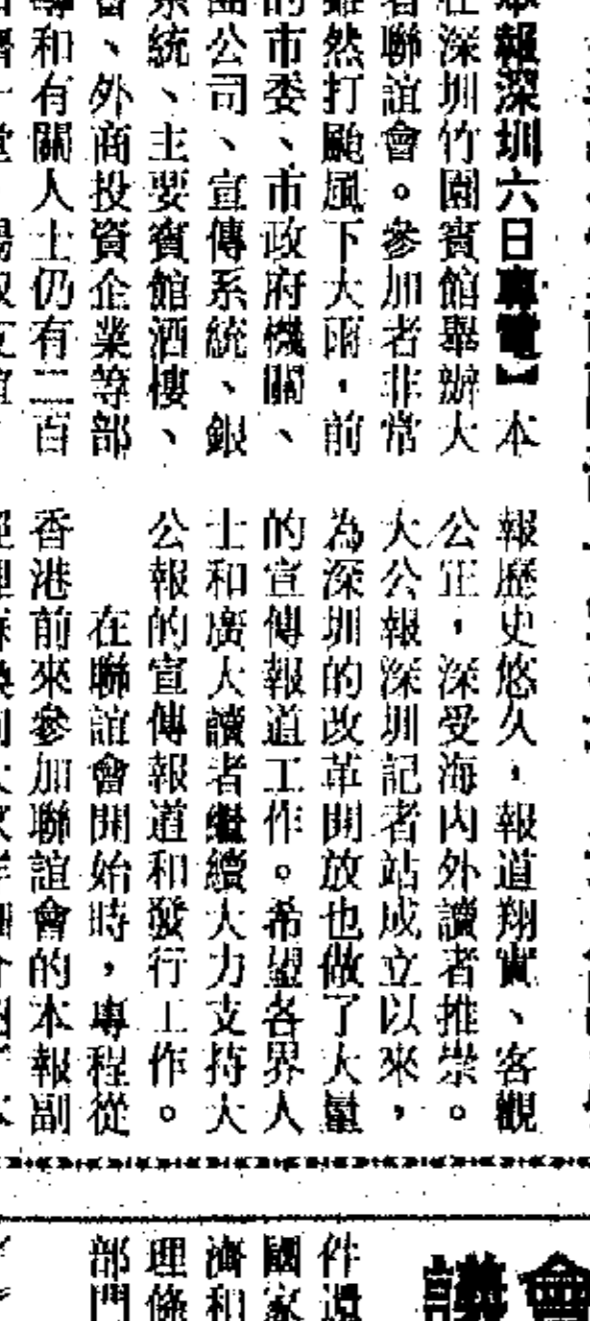 本報深圳六日專電】本
在深圳竹園賓館舉辦大
者聯誼會。參加者非常
雖然打颱風下大雨，前
的市委、市政府機關、
公司、宣傳系統、銀
系統、主要賓館酒樓、
、外商投資企業等部
和有關人士仍有二百
報歷史悠久，報道翔實、客觀
公正，深受海內外讀者推崇。
大公報深圳記者站成立以來，
為深圳的改革開放也做了大量
的宣傳報道工作。希望各界人
士和廣大讀者繼續大力支持大
公報的宣傳報道和發行工作。
在聯誼會開始時，專程從
香港前來參加聯誼會的本報副
會
議
件
國家
濟和
理條
部門